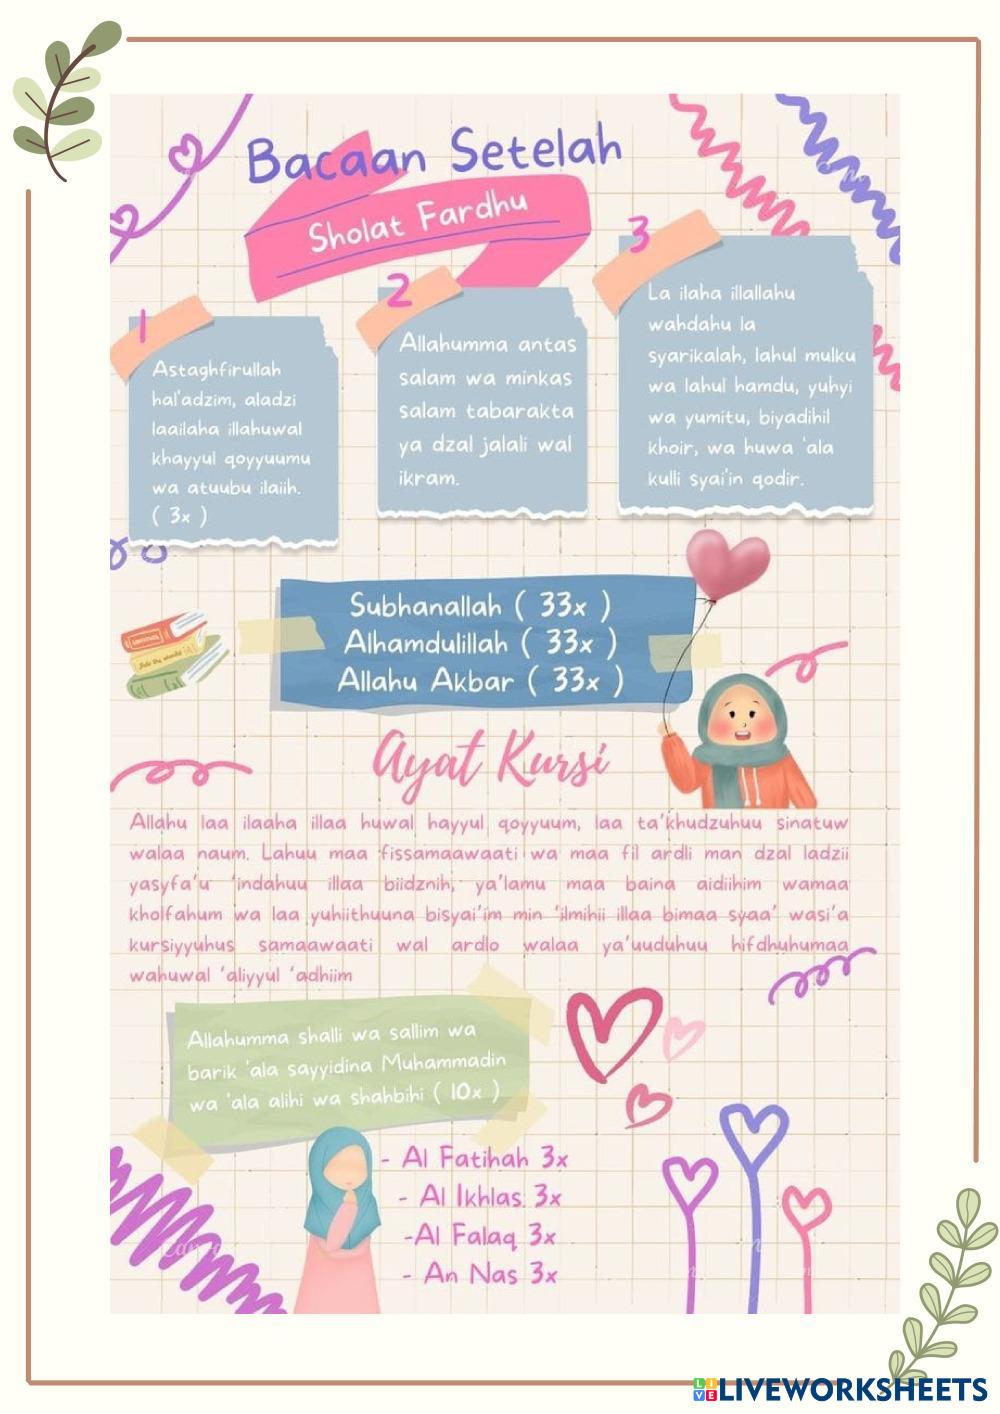 Bacaan Setelah
Sholat Fardhu
1
Astaghfirullah
hal'adzim, aladzi
laailaha illahuwal
khayyul qoyyuumu
wa atuubu ilaiih.
( 3x )
2
Allahumma antas
salam wa minkas
salam tabarakta
ya dzal jalali wal
ikram.
3
La ilaha illallahu
wahdahu la
syarikalah, lahul mulku
wa lahul hamdu, yuhyi
wa yumitu, biyadihil
khoir, wa huwa 'ala
kulli syai'in qodir.
Subhanallah ( 33x )
Alhamdulillah ( 33x )
Allahu Akbar ( 33x )
Ayat Kursi
Allahu laa ilaaha illaa huwal hayyul qoyyuum, laa ta'khudzuhuu sinatuw
walaa naum. Lahuu maa fissamaawaati wa maa fil ardli man dzal ladzii
yasyfa'u 'indahuu illaa biidznih, ya'lamu maa baina aidiihim wamaa
kholfahum wa laa yuhiithuuna bisyai'im min 'ilmihii illaa bimaa syaa' wasi'a
kursiyyuhus samaawaati wal ardlo walaa ya'uuduhuu hifdhuhumaa
wahuwal 'aliyyul 'adhiim
Allahumma shalli wa sallim wa
barik 'ala sayyidina Muhammadin
wa 'ala alihi wa shahbihi ( 10x )
- Al Fatihah 3x
- Al Ikhlas 3x
-Al Falaq 3x
- An Nas 3x
LIVEWORKSHEETS